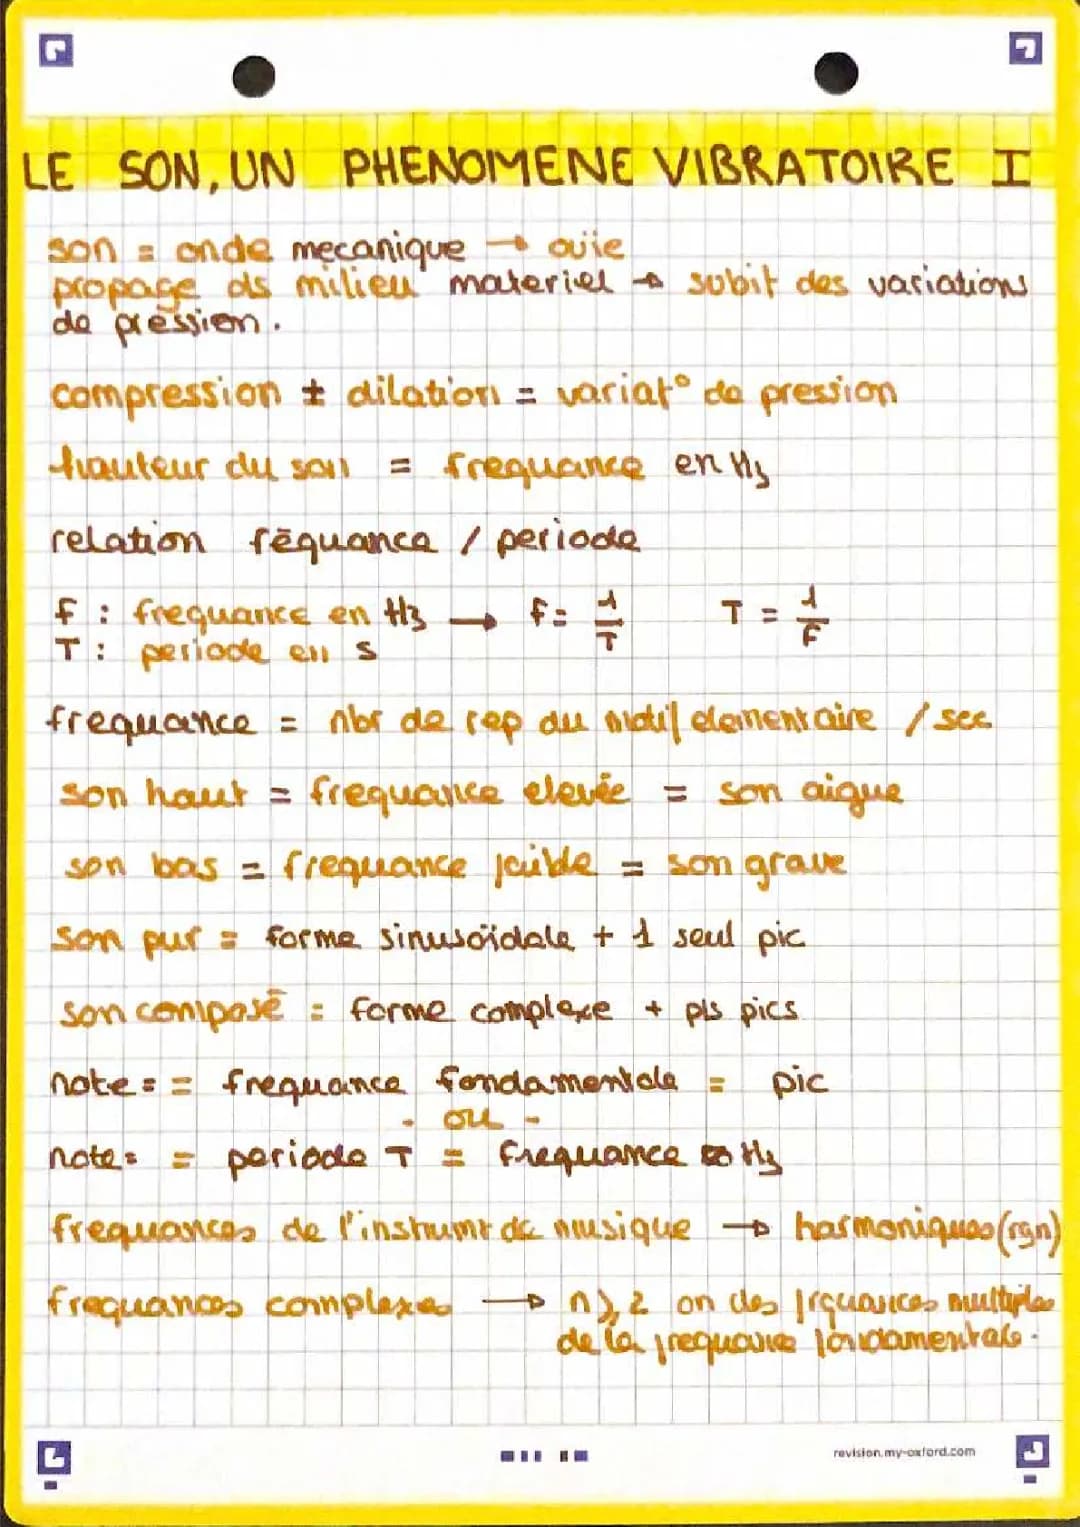 LE SON, UN PHENOMENE VIBRATOIRE I
son = onde mecanique → ouïe
propage ds milieu materiel → subit des variations
de pression.
compression ± dilation = variat° de pression
hauteur du son = frequance en Hz
relation féquance / periode
f : frequance en Hz → f = 1/T T = 1/F
T : periode en s
frequance = nbr de rep du motif elementaire / sec
son haut = frequance elevée = son aigue
son bas = frequance faible = son grave
son pur = forme sinusoïdale + 1 seul pic
son composé = forme complexe + pls pics
note = = frequance fondamentale = pic
- ou -
note = = periode T = frequance Hz
frequances de l'instrumt de musique → harmoniques (rgn)
frequances complexes → n⩾2 on des frquances multiples
de la frequance fondamentale.
revision.my-oxford.com